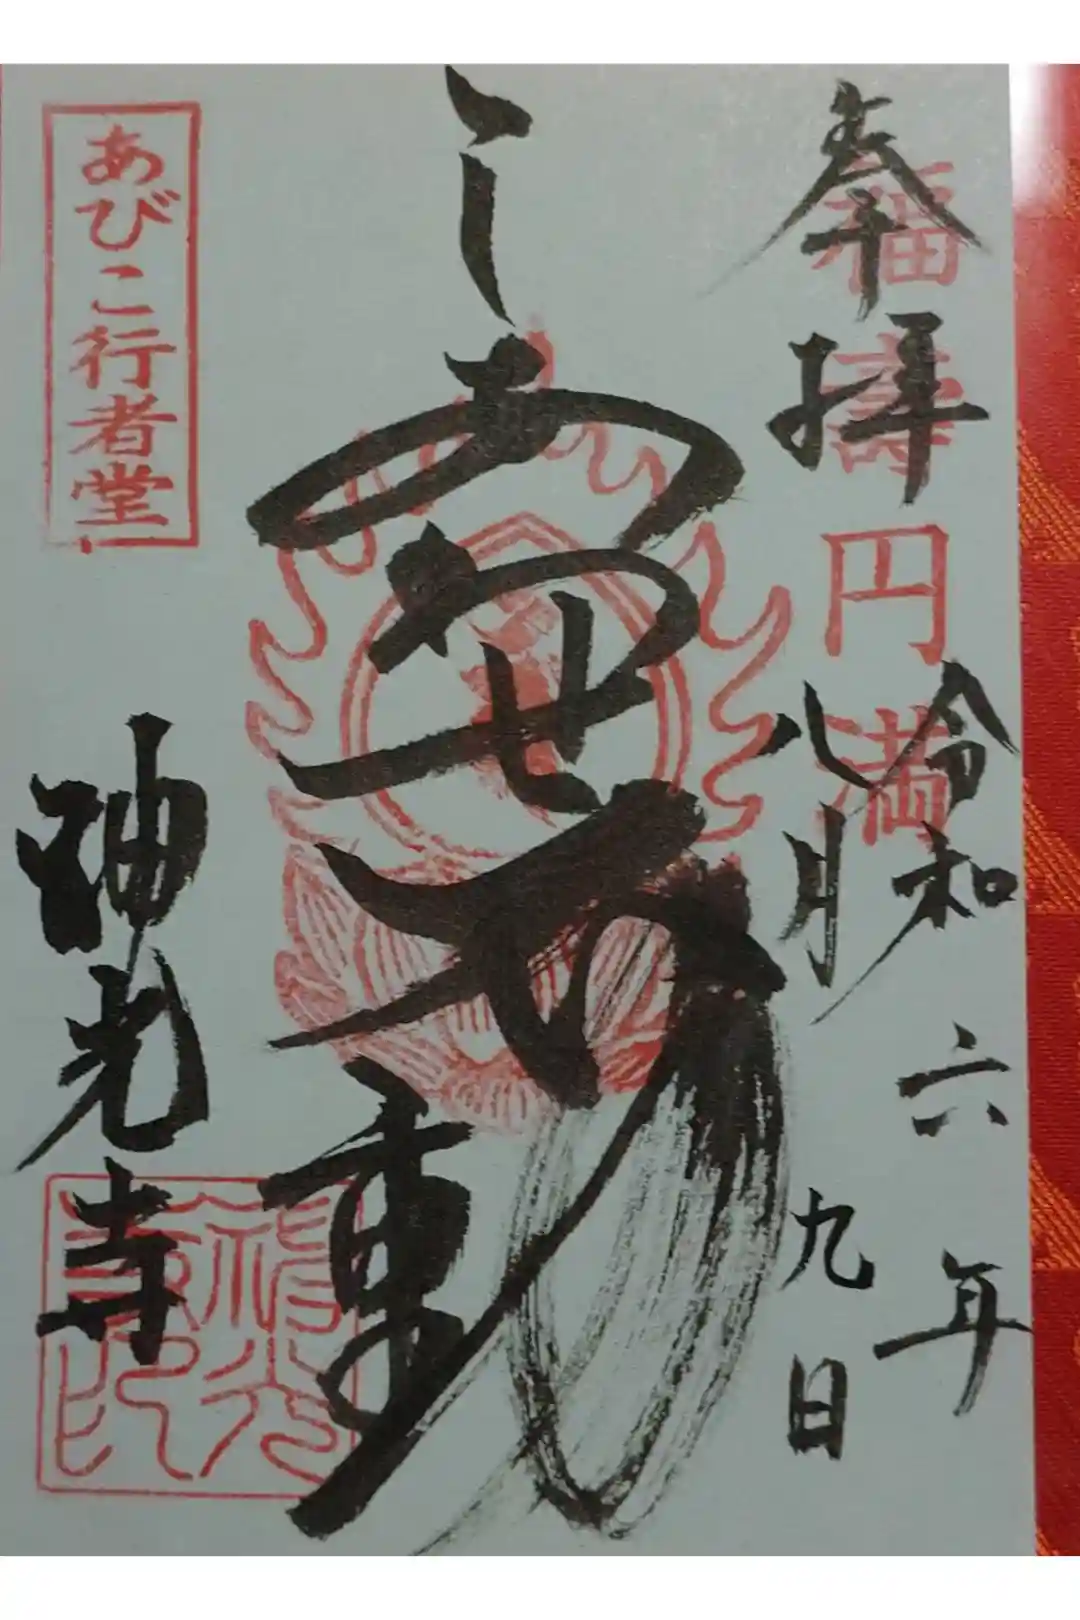 奉拝
福寿円満
令和六年
八月九日
しあわせ不動
神光寺
あびこ行者堂